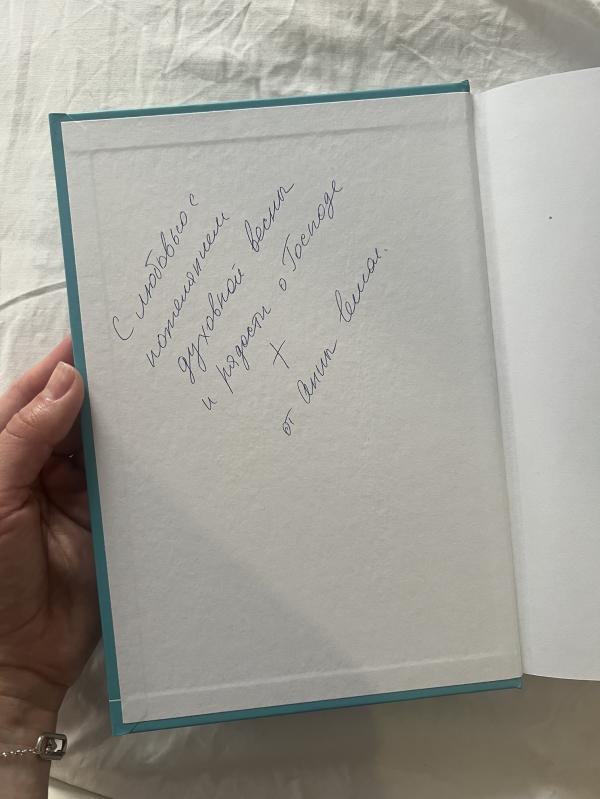 С любовью с
пожеланием
духовной весны
и радости о Господе
+
от Анны